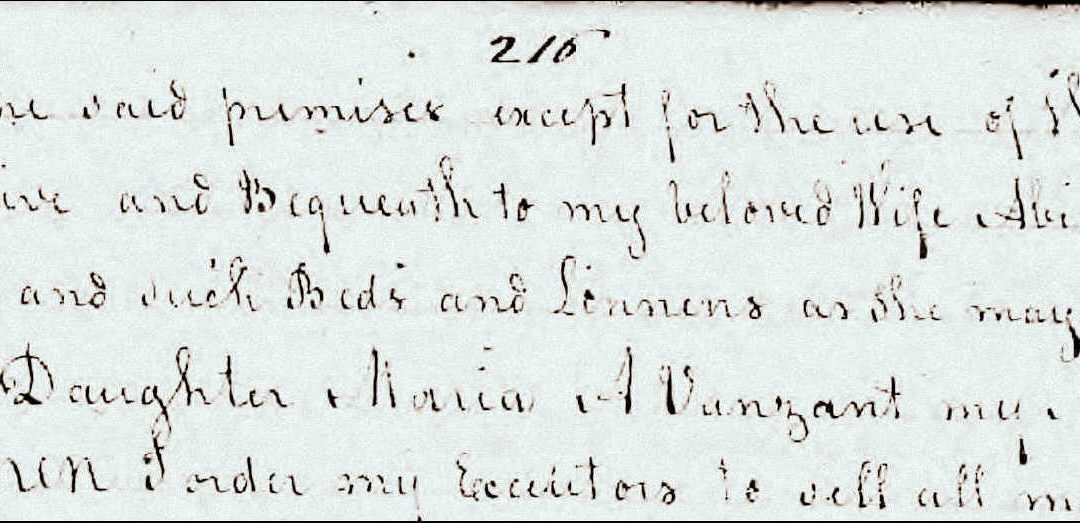 216
he said premises except for the use of th
ive and Bequeath to my beloved Wife Abi
and such Beds and Linnens as she may
Daughter Maria A Vanzant my
I order my Executors to sell all m